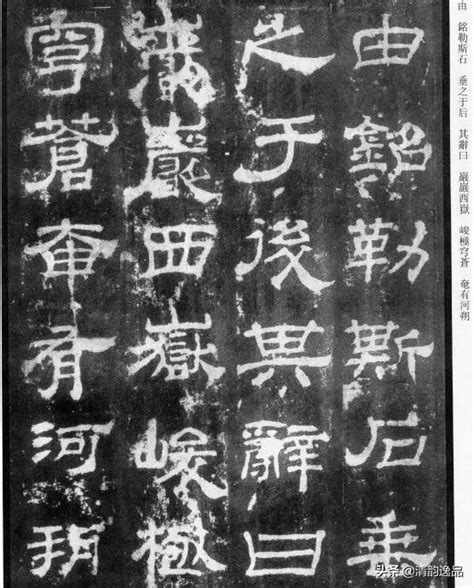 由 銘勒斯石 垂之于后 其辭曰 巖巖西嶽 峻極穹蒼 奄有河朔
由銘勒斯石垂
之于後其辭曰
巖巖西嶽峻極
穹蒼奄有河朔
头条 @清韵逸品